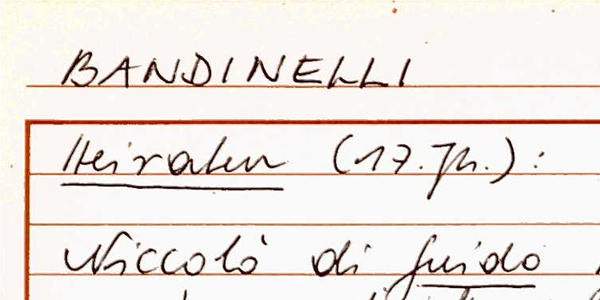 BANDINELLI
Heiraten (17. Jh.):
Niccolò di Guido